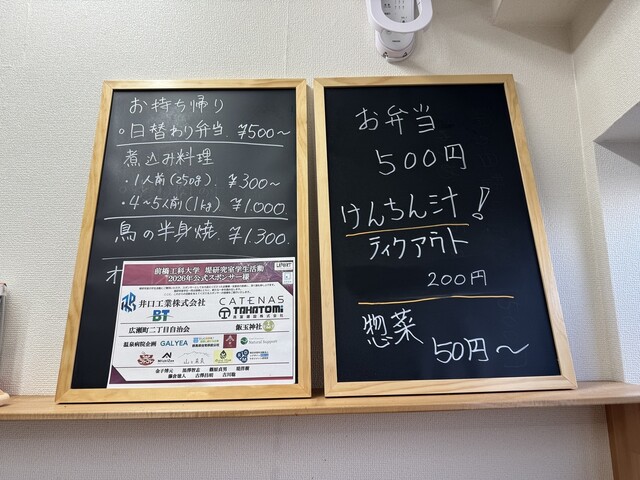 お持ち帰り
・日替わり弁当 ¥500～
煮込み料理
・1人前(250g) ¥300～
・4～5人前(1kg) ¥1,000.
鳥の半身焼 ¥1,300.
オ
前橋工科大学 堤研究室学生活動
2026年公式スポンサー様
井口工業株式会社
BT
CATENAS
TAKATOMi
広瀬町二丁目自治会
飯玉神社
温泉病院企画
GALYEA
お弁当
500円
けんちん汁!
テイクアウト
200円
惣菜
50円～